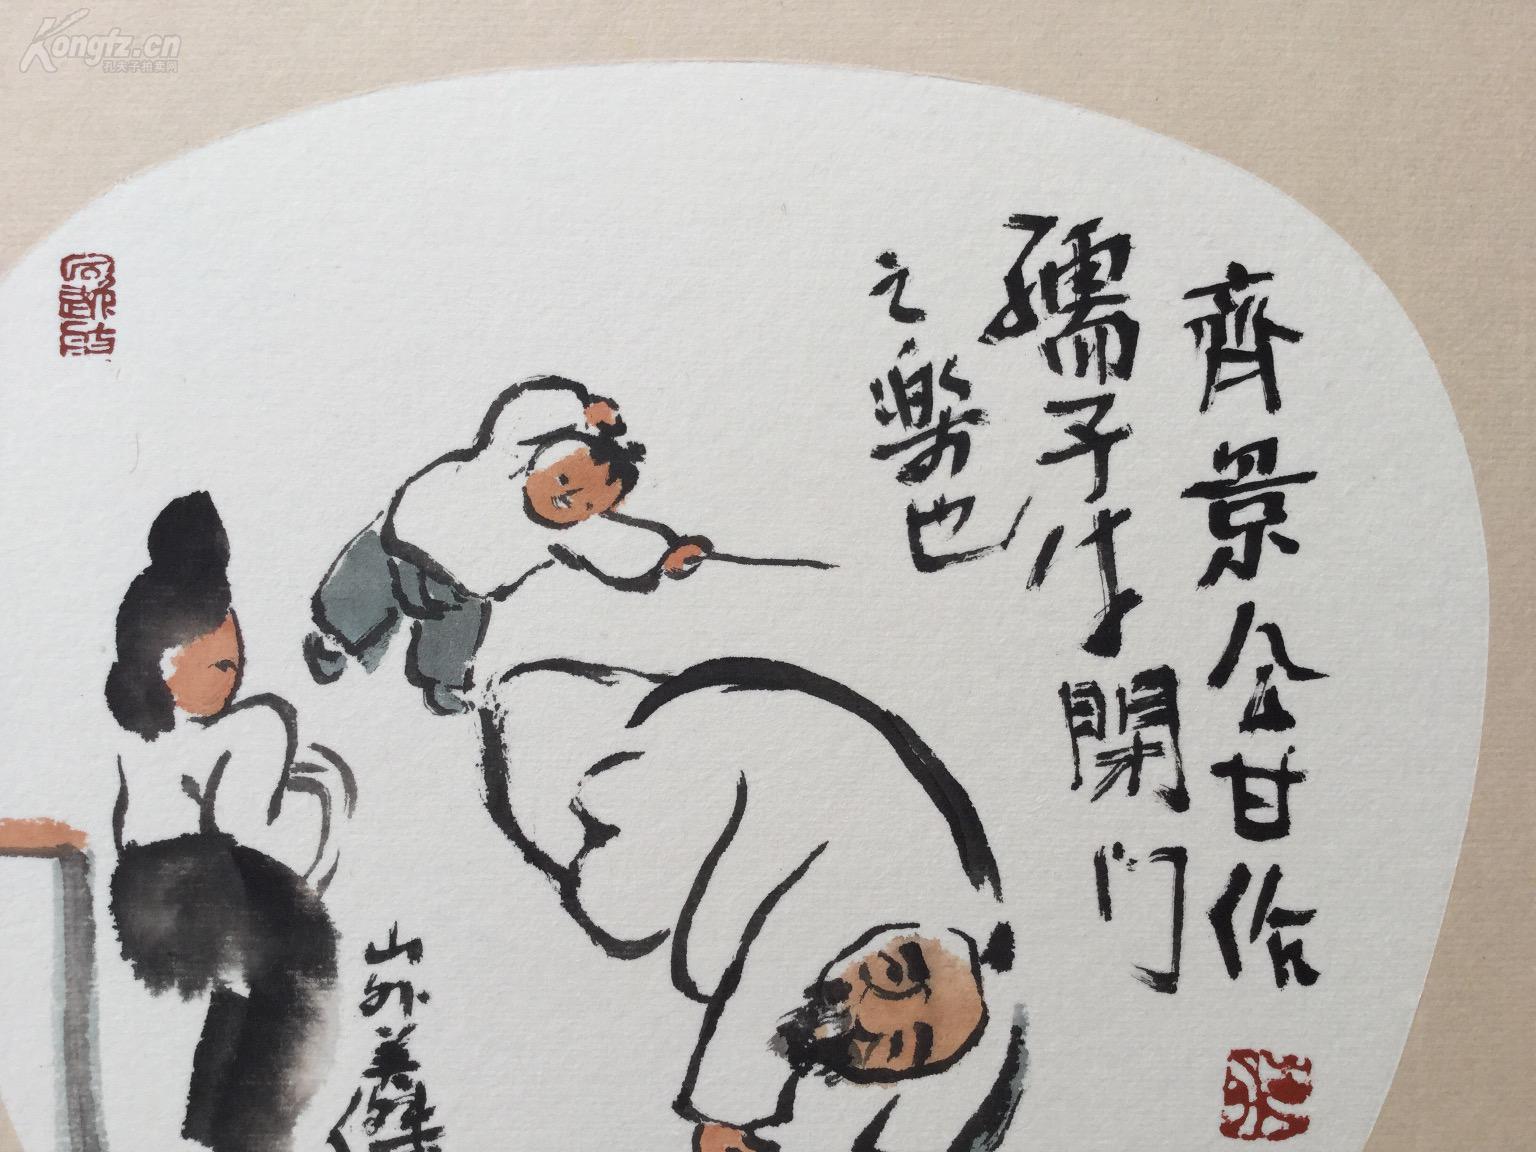 Kongfz.cn
孔夫子拍卖网
齊景全甘
孺子牛閑門
之樂也
山外美傑